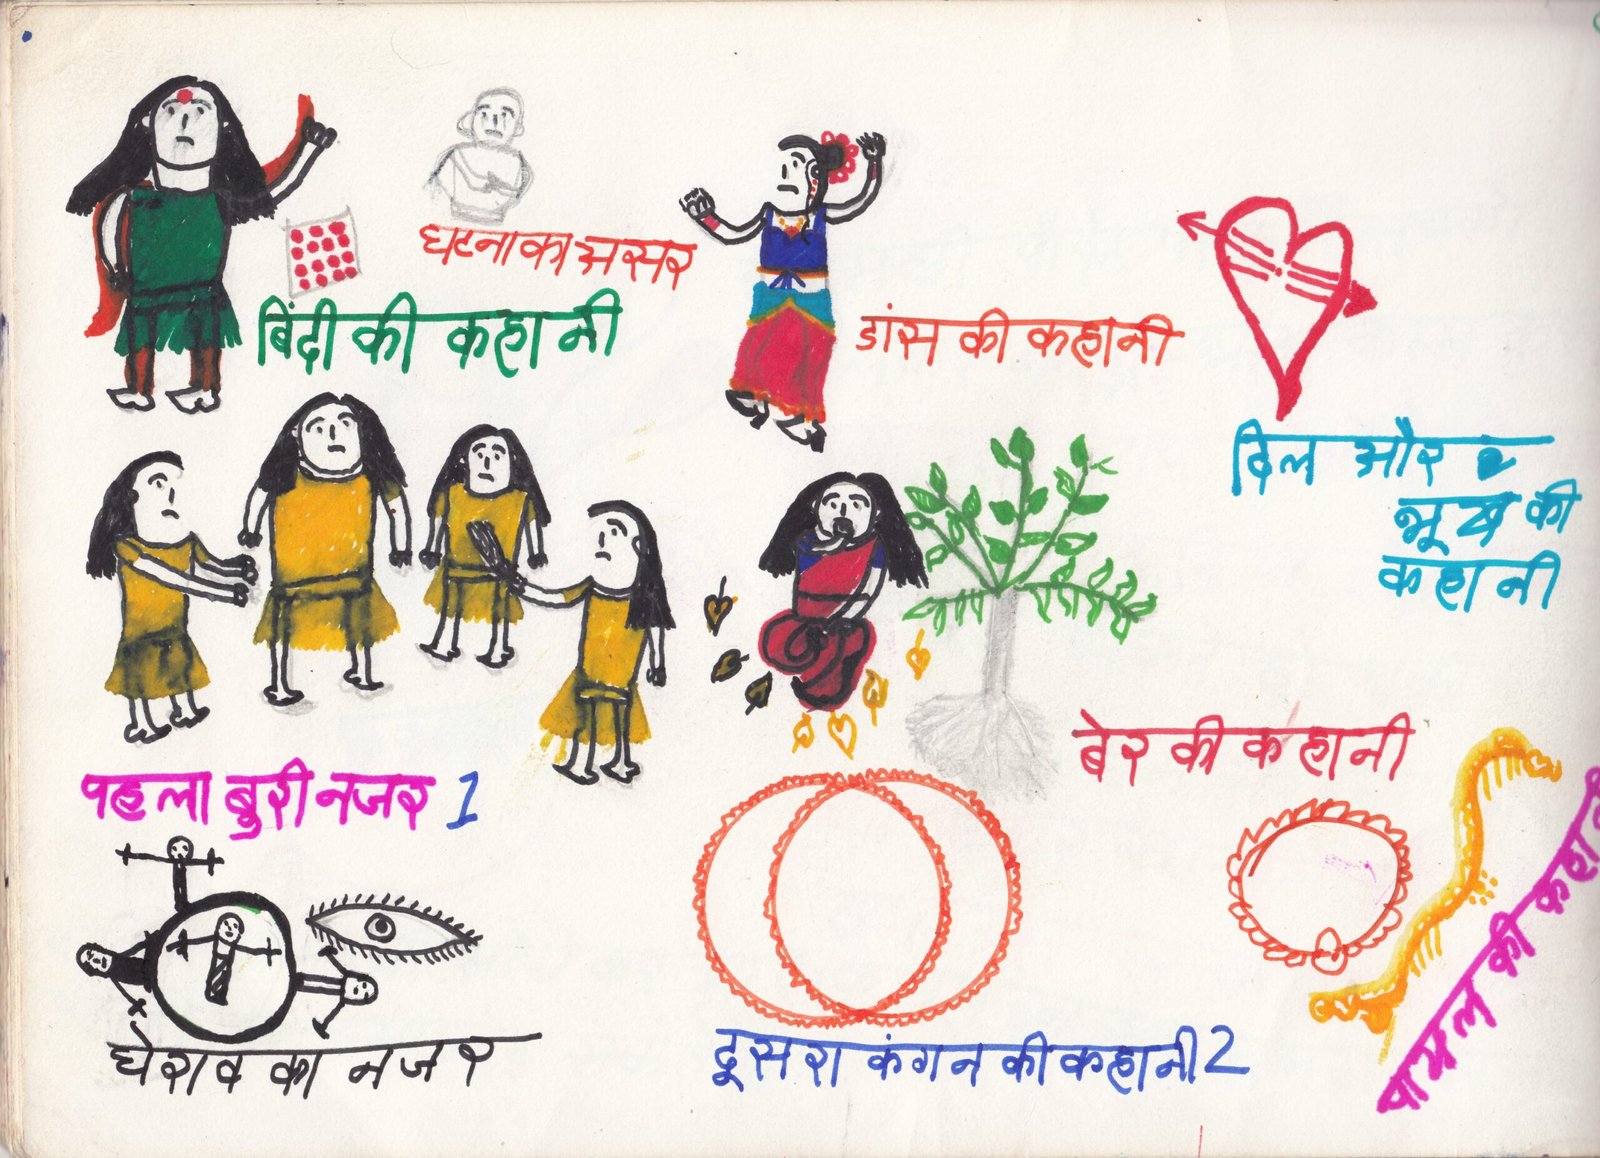 घटना का असर
बिंदी की कहानी
डांस की कहानी
दिल और
भूख की
कहानी
पहला बुरी नजर 1
बेर की कहानी
घेराव का नजर
दूसरा कंगन की कहानी 2
पायल की कहानी